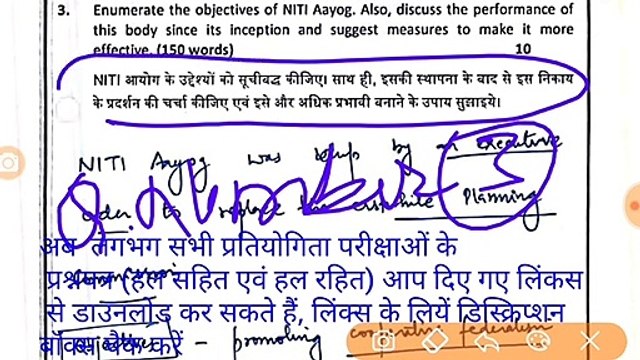 3. Enumerate the objectives of NITI Aayog. Also, discuss the performance of
this body since its inception and suggest measures to make it more
effective. (150 words) 10
NITI आयोग के उद्देश्यों को सूचीबद्ध कीजिए। साथ ही, इसकी स्थापना के बाद से इस निकाय
के प्रदर्शन की चर्चा कीजिए एवं इसे और अधिक प्रभावी बनाने के उपाय सुझाइये।
NITI Aayog was setup by an executive
order to replace the erstwhile Planning
Q. Number 3
अब लगभग सभी प्रतियोगिता परीक्षाओं के
प्रश्नपत्र (हल सहित एवं हल रहित) आप दिए गए लिंकस
से डाउनलोड कर सकते हैं, लिंक्स के लियें डिस्क्रिप्शन
बॉक्स चैक करें
- promoting cooperative federalism